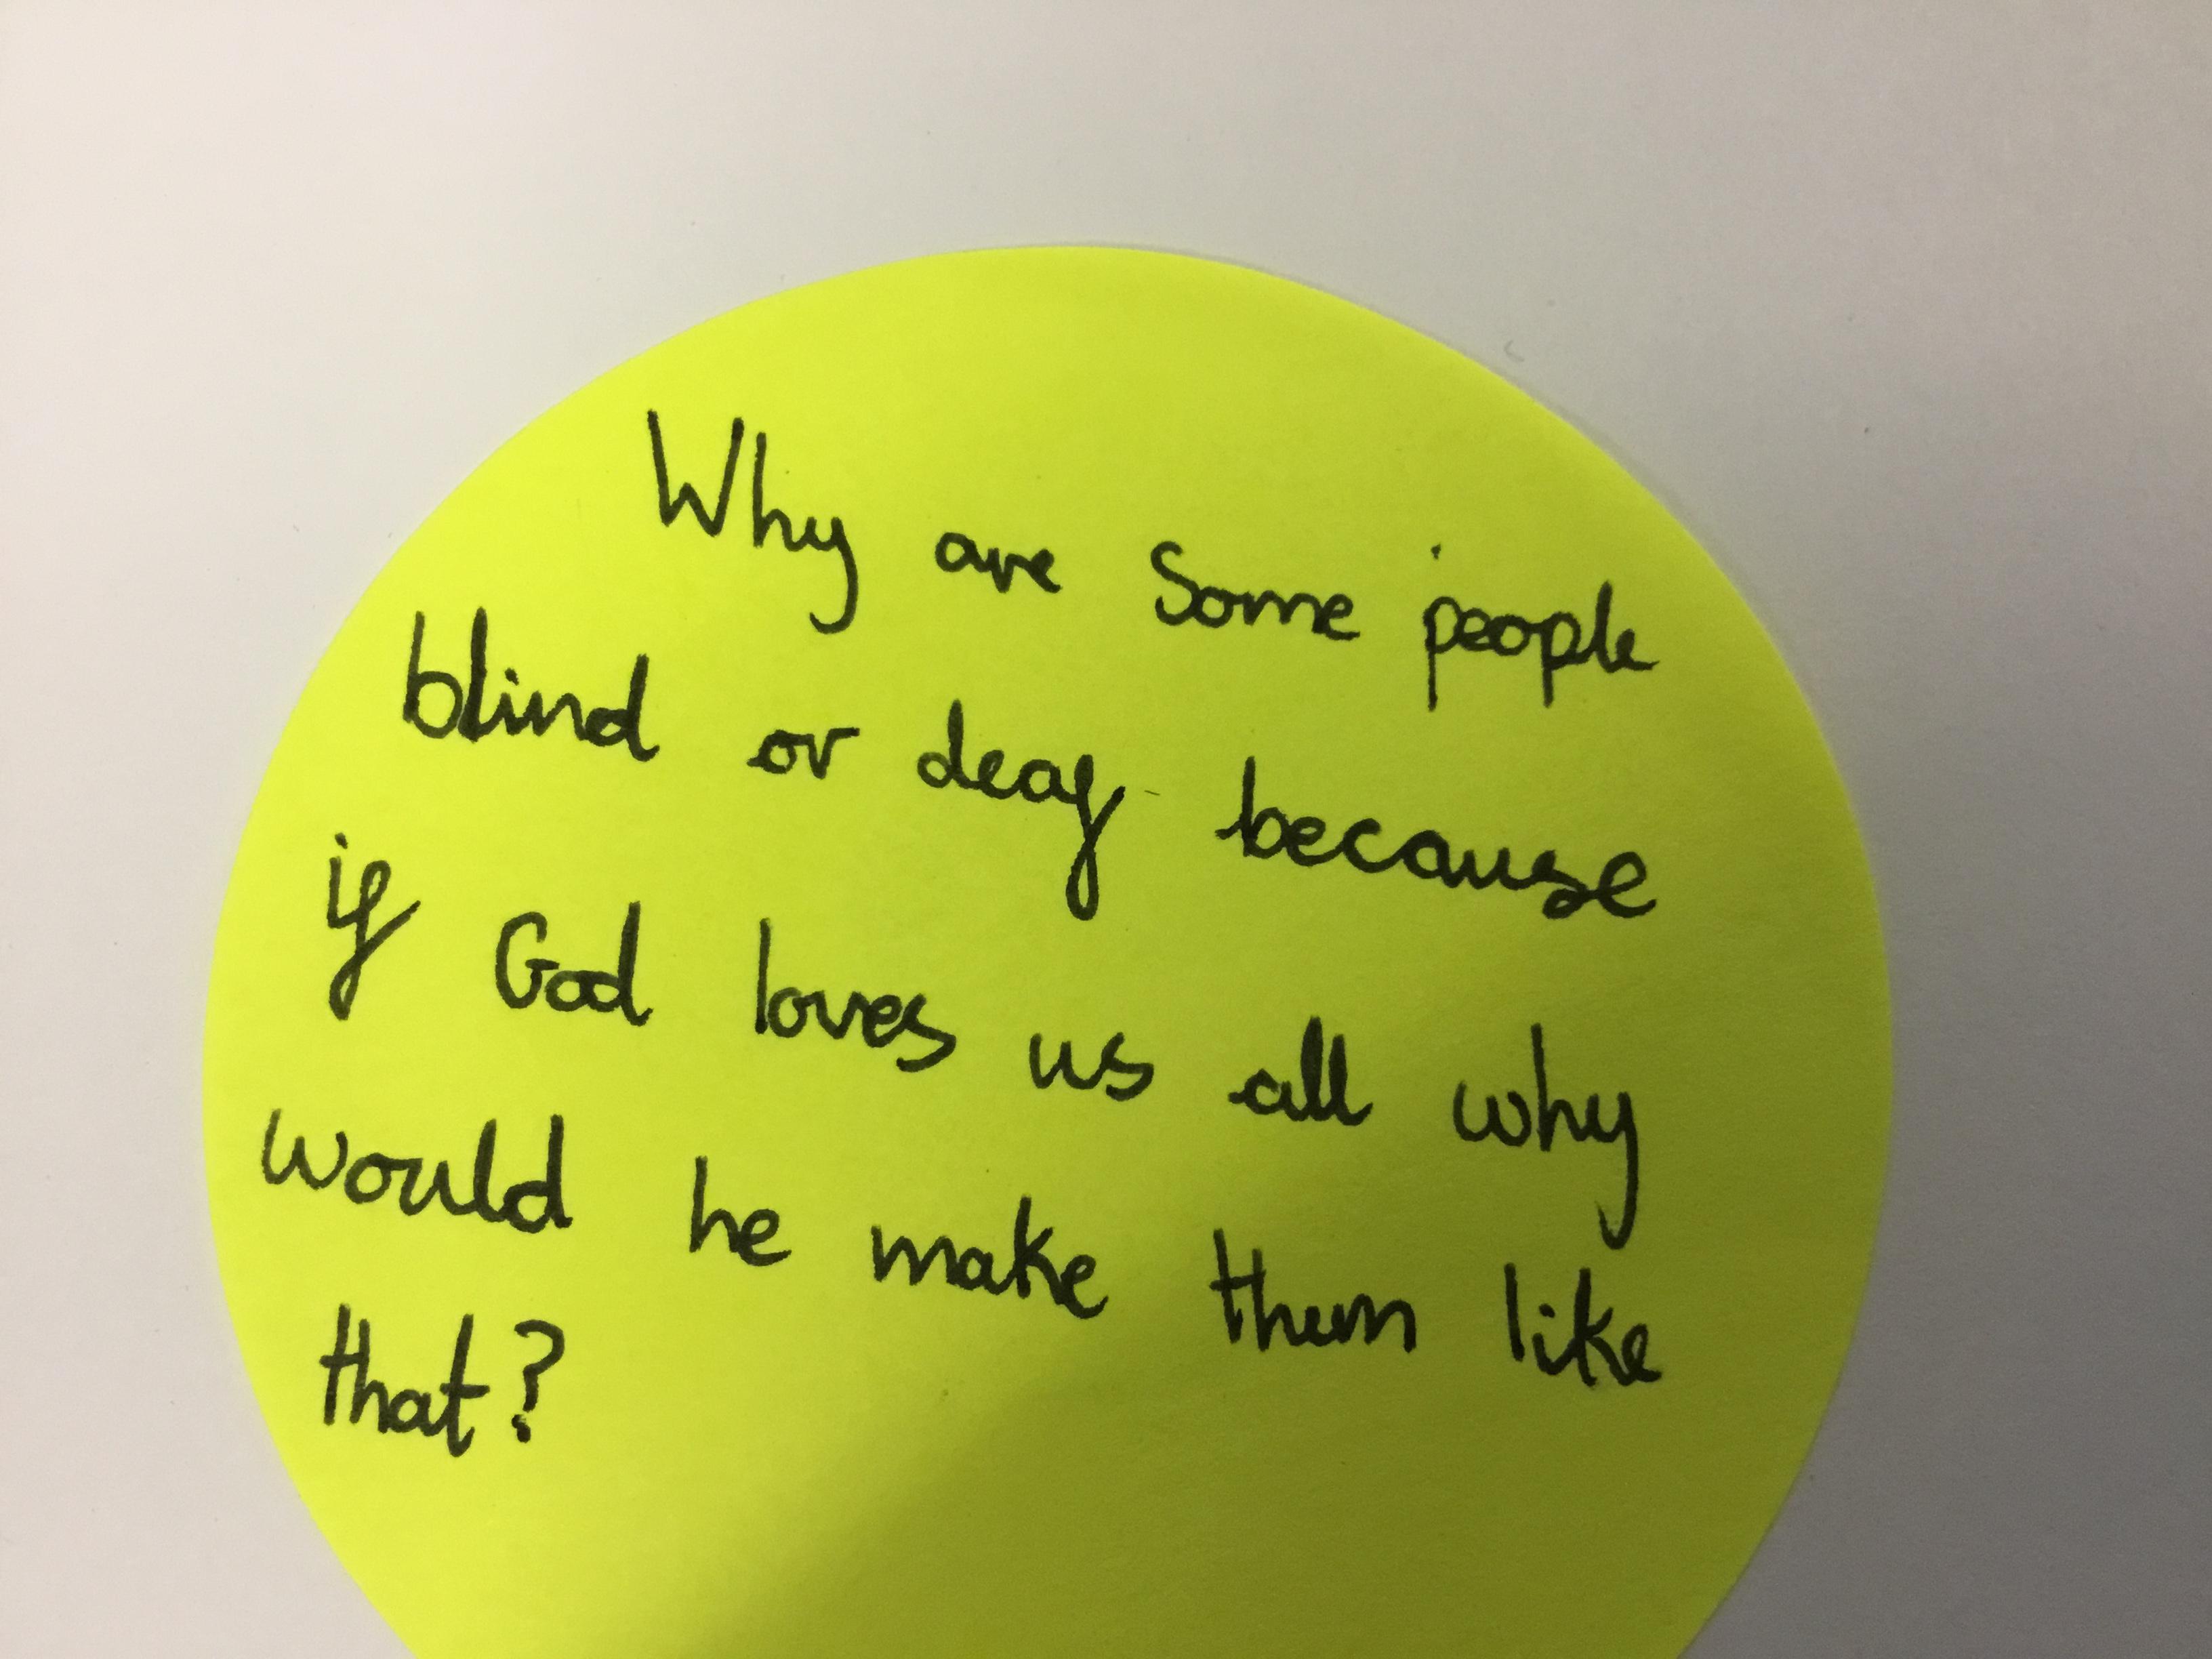 Why are Some people
blind or deaf because
if God loves us all why
would he make them like
that?